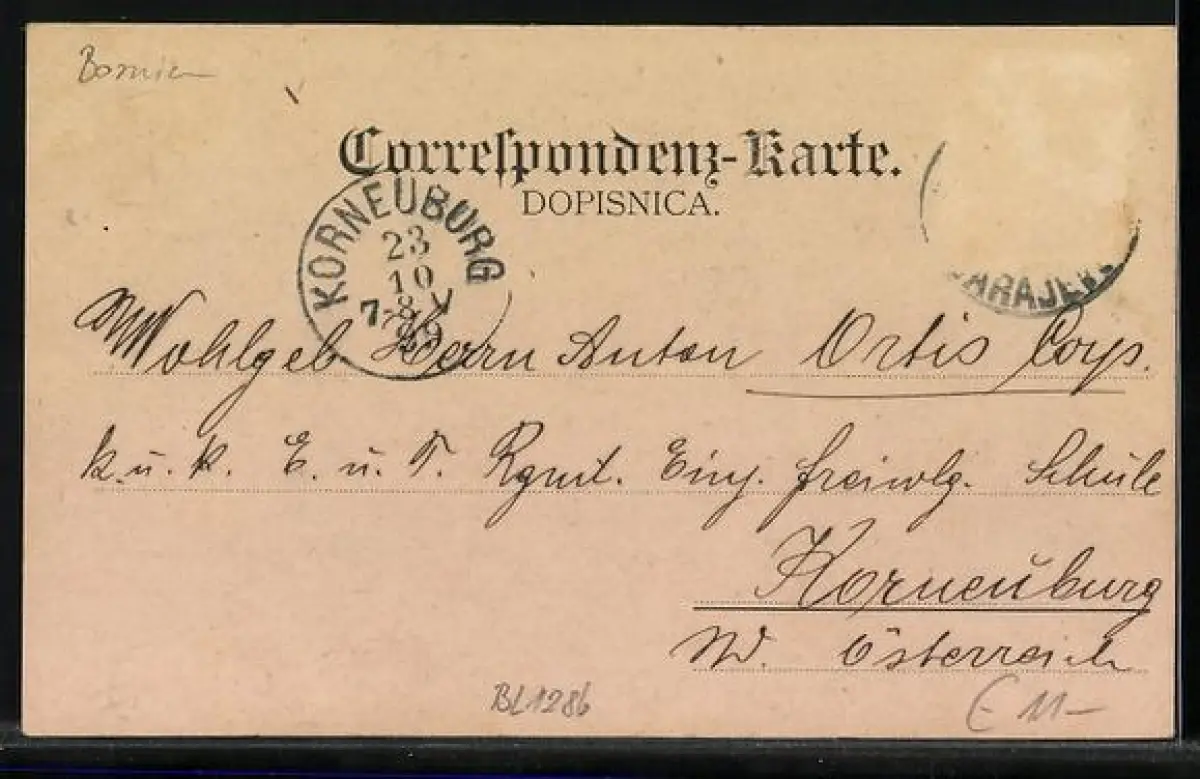 Bosnien
Correspondenz-Karte.
DOPISNICA.
KORNEUBURG
23
10
7-8 V
99
SARAJEV
Wohlgeb Herrn Anton Ortis Corp.
k. u. k. E. u. T. Rgmt. Einj. freiwlg. Schule
Korneuburg
Nd. Österreich
BL1286
€ 11-